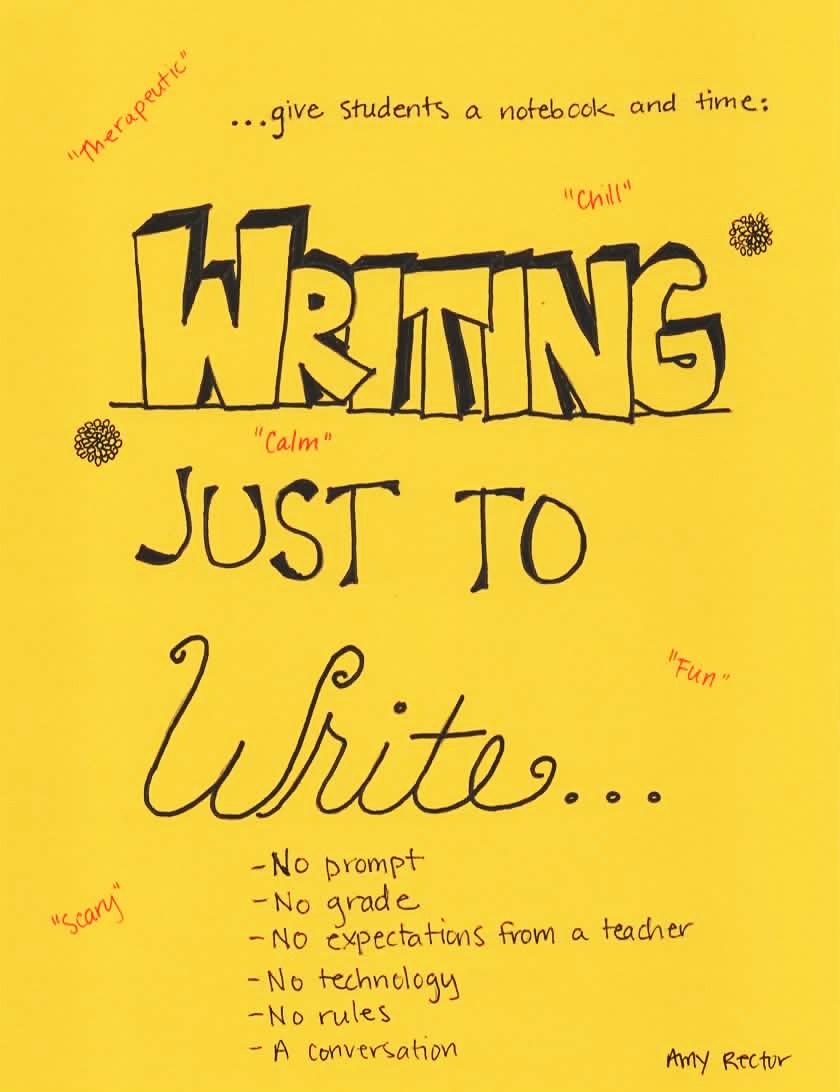 "Therapeutic"
...give students a notebook and time:
"Chill"
WRITING
"Calm"
JUST TO
Write...
"Fun"
"Scary"
-No prompt
-No grade
-No expectations from a teacher
-No technology
-No rules
-A conversation
Amy Rector